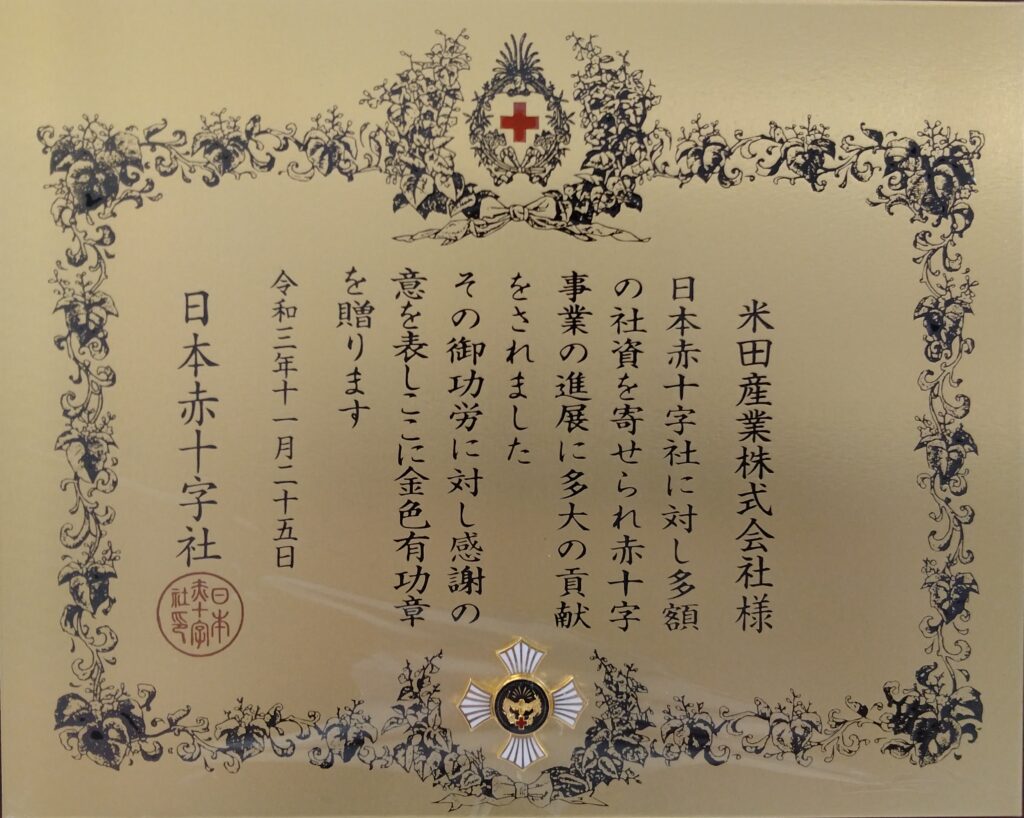 米田産業株式会社様
日本赤十字社に対し多額
の社資を寄せられ赤十字
事業の進展に多大の貢献
をされました
その御功労に対し感謝の
意を表しここに金色有功章
を贈ります
令和三年十一月二十五日
日本赤十字社
日本
赤十字
社印